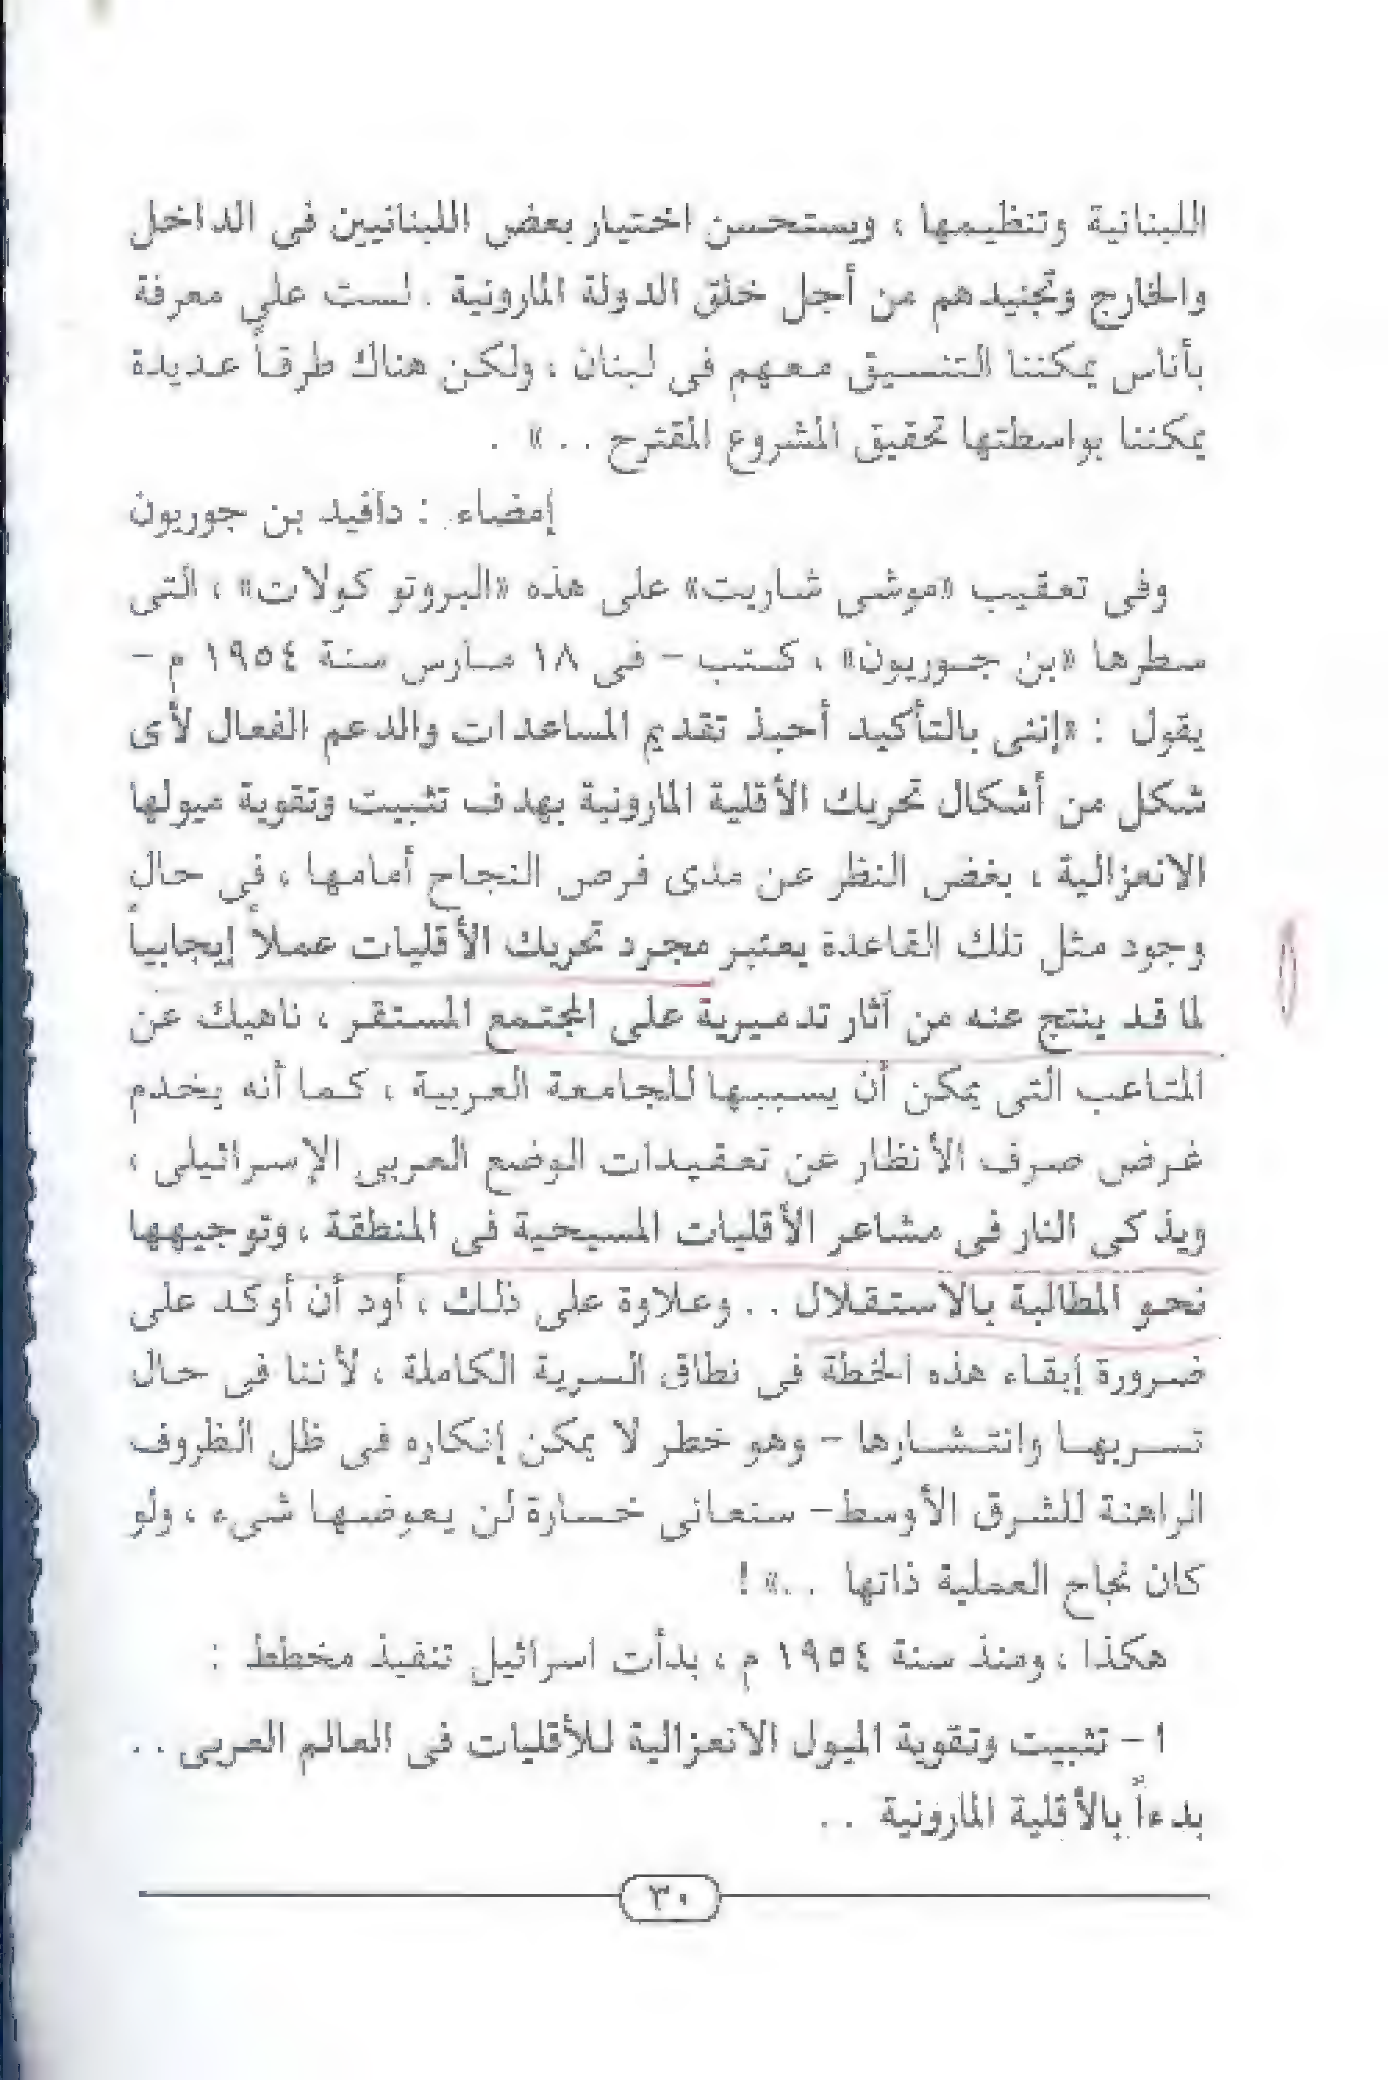 اللبنانية وتنظيمها ، ويستحسن اختيار بعض اللبنانيين فى الداخل
والخارج وتجنيدهم من أجل خلق الدولة المارونية . لست على معرفة
بأناس يمكننا التنسيق معهم فى لبنان ، ولكن هناك طرقاً عديدة
يمكننا بواسطتها تحقيق المشروع المقترح . . » .
إمضاء : داڤيد بن جوريون
وفى تعقيب «موشى شاريت» على هذه «البروتو كولات» ، التى
سطرها «بن جوريون» ، كتب - فى ١٨ مارس سنة ١٩٥٤ م -
يقول : «إننى بالتأكيد أحبذ تقديم المساعدات والدعم الفعال لأى
شكل من أشكال تحريك الأقلية المارونية بهدف تثبيت وتقوية ميولها
الانعزالية ، بغض النظر عن مدى فرص النجاح أمامها ، في حال
وجود مثل تلك القاعدة يعتبر مجرد تحريك الأقليات عملاً إيجابياً
لما قد ينتج عنه من آثار تدميرية على المجتمع المستقر ، ناهيك عن
المتاعب التى يمكن أن يسببها للجامعة العربية ، كما أنه يخدم
غرض صرف الأنظار عن تعقيدات الوضع العربى الإسرائيلى ،
ويذكى النار فى مشاعر الأقليات المسيحية فى المنطقة ، وتوجيهها
نحو المطالبة بالاستقلال . . وعلاوة على ذلك ، أود أن أوكد على
ضرورة إبقاء هذه الخطة فى نطاق السرية الكاملة ، لأننا فى حال
تسربها وانتشارها - وهو خطر لا يمكن إنكاره فى ظل الظروف
الراهنة للشرق الأوسط - سنعانى خسارة لن يعوضها شىء ، ولو
كان نجاح العملية ذاتها . . » !
هكذا ، ومنذ سنة ١٩٥٤ م ، بدأت اسرائيل تنفيذ مخطط :
١ - تثبيت وتقوية الميول الانعزالية للأقليات فى العالم العربى . .
بدءاً بالأقلية المارونية . .
٣٠